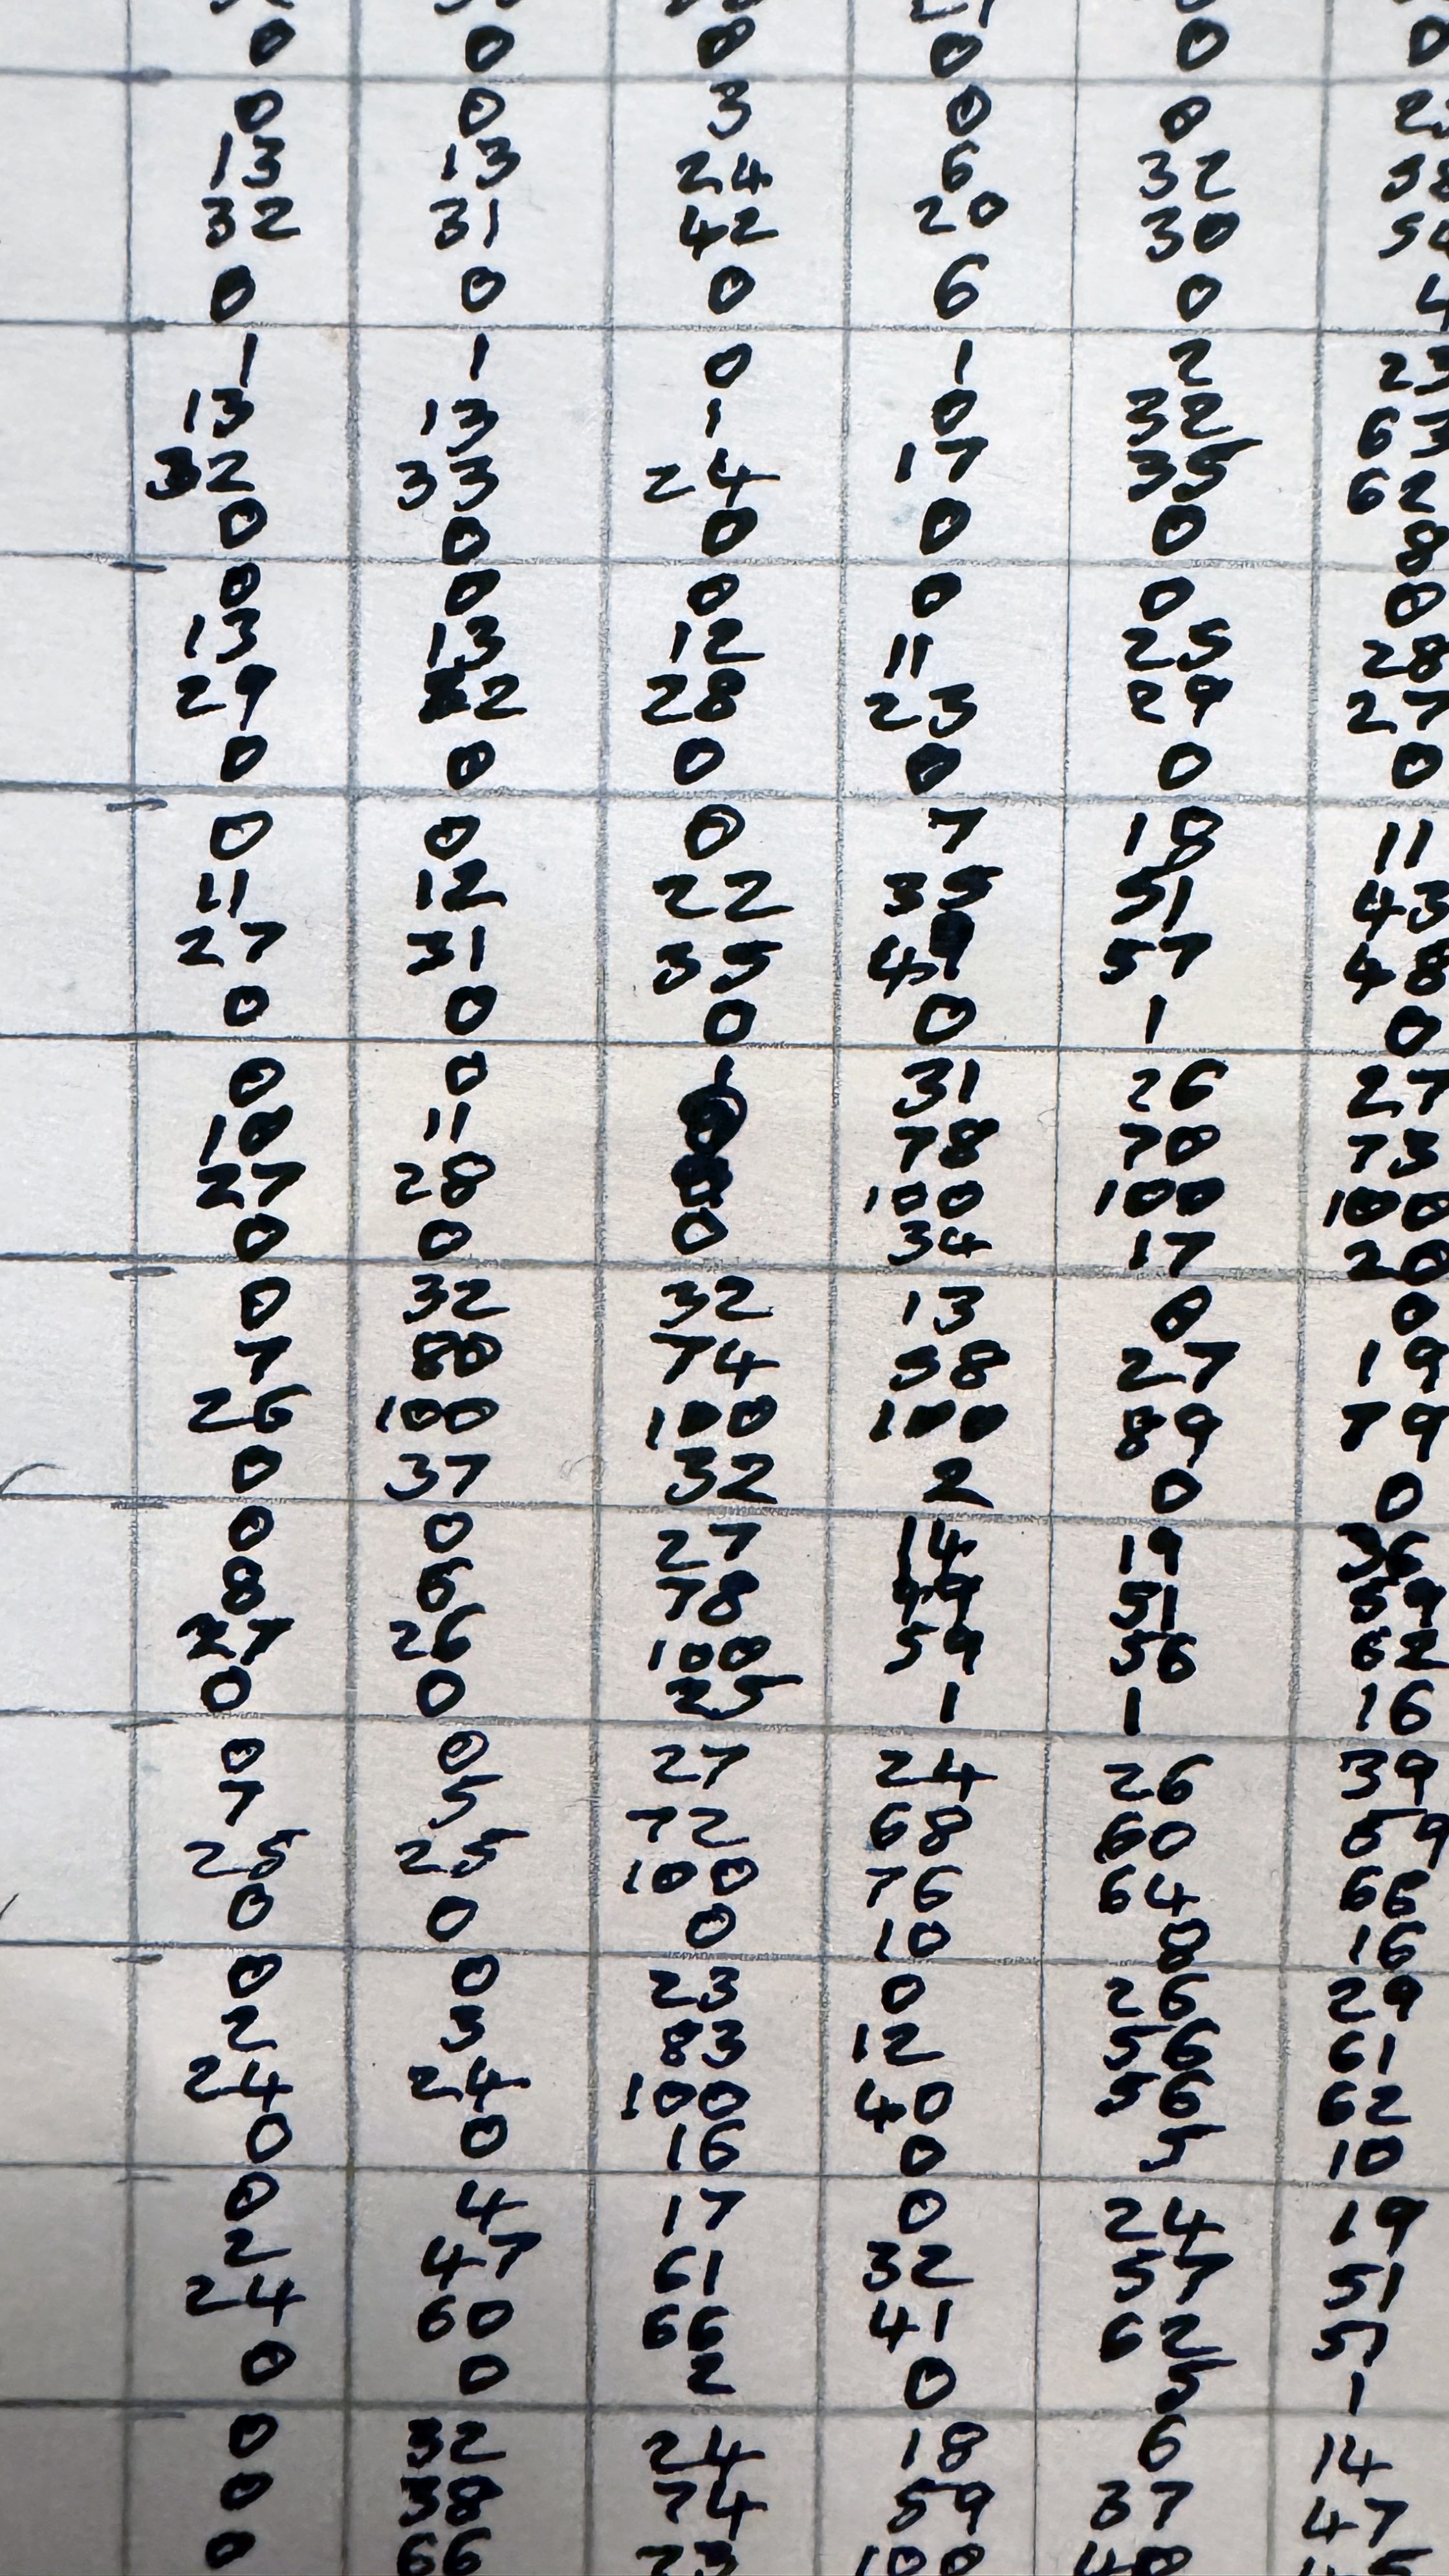 0 0 0 0 0 0
0 0 3 0 0
13 13 24 6 32
32 31 42 20 30
0 0 0 6 0 4
1 1 0 1 2 23
13 13 1 0 32 63
32 33 24 17 35 62
0 0 0 0 0 8
0 0 0 0 0 0
13 13 12 11 25 28
29 32 28 23 29 27
0 0 0 0 0 0
0 0 0 7 10 11
11 12 22 35 51 43
27 31 35 49 57 48
0 0 0 0 1 0
0 0 1 31 26 27
10 11 78 70 73
27 28 100 100 100
0 0 0 34 17 20
0 32 32 13 0 0
7 80 74 58 27 19
26 100 100 100 89 79
0 37 32 2 0 0
0 0 27 14 19 36
8 6 78 49 51 59
27 26 100 59 56 62
0 0 25 1 1 16
0 0 27 24 26 39
7 5 72 68 60 69
25 25 100 76 64 66
0 0 0 10 8 16
0 0 23 0 26 29
2 3 83 12 56 61
24 24 100 40 56 62
0 0 16 0 5 10
0 4 17 0 24 19
2 47 61 32 57 51
24 60 66 41 62 51
0 0 2 0 5 1
0 32 24 18 6 14
0 38 74 59 37 47
0 66 73 100 40